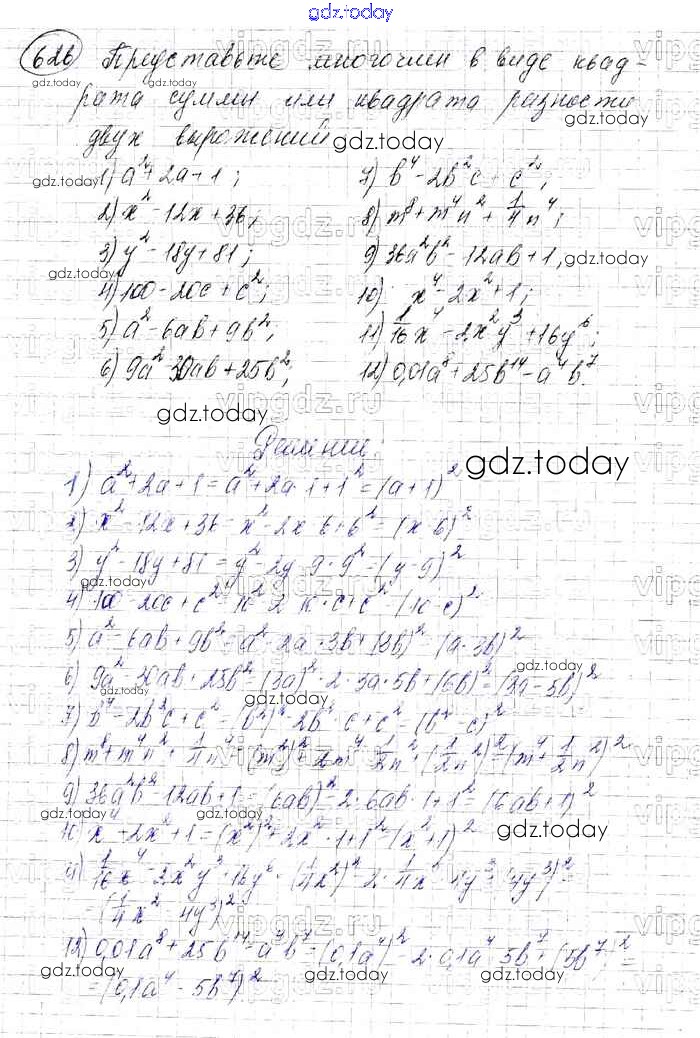 gdz.today
626 Представьте многочлен в виде квад-
рата суммы или квадрата разности
двух выражений
1) a² + 2a + 1;
2) x² - 12x + 36;
3) y² - 18y + 81;
4) 100 - 20c + c²;
5) a² - 6ab + 9b²;
6) 9a² - 30ab + 25b²;
7) b⁴ - 2b²c + c²;
8) m⁸ + m⁴n² + 1/4 n⁴;
9) 36a²b² - 12ab + 1;
10) x⁴ - 2x² + 1;
11) 1/16 x⁴ - 2x²y³ + 16y⁶;
12) 0,01a⁸ + 25b¹⁴ - a⁴b⁷.
Решение:
1) a² + 2a + 1 = a² + 2a·1 + 1² = (a + 1)²
2) x² - 12x + 36 = x² - 2x·6 + 6² = (x - 6)²
3) y² - 18y + 81 = y² - 2y·9 + 9² = (y - 9)²
4) 100 - 20c + c² = 10² - 2·10·c + c² = (10 - c)²
5) a² - 6ab + 9b² = a² - 2a·3b + (3b)² = (a - 3b)²
6) 9a² - 30ab + 25b² = (3a)² - 2·3a·5b + (5b)² = (3a - 5b)²
7) b⁴ - 2b²c + c² = (b²)² - 2b²·c + c² = (b² - c)²
8) m⁸ + m⁴n² + 1/4 n⁴ = (m⁴)² + 2m⁴·1/2 n² + (1/2 n²)² = (m⁴ + 1/2 n²)²
9) 36a²b² - 12ab + 1 = (6ab)² - 2·6ab·1 + 1² = (6ab + 1)²
10) x⁴ - 2x² + 1 = (x²)² + 2x²·1 + 1² = (x² + 1)²
11) 1/16 x⁴ - 2x²y³ + 16y⁶ = (1/4 x²)² - 2·1/4 x²·4y³ + (4y³)² =
= (1/4 x² - 4y³)²
12) 0,01a⁸ + 25b¹⁴ - a⁴b⁷ = (0,1a⁴)² - 2·0,1a⁴·5b⁷ + (5b⁷)² =
= (0,1a⁴ - 5b⁷)²